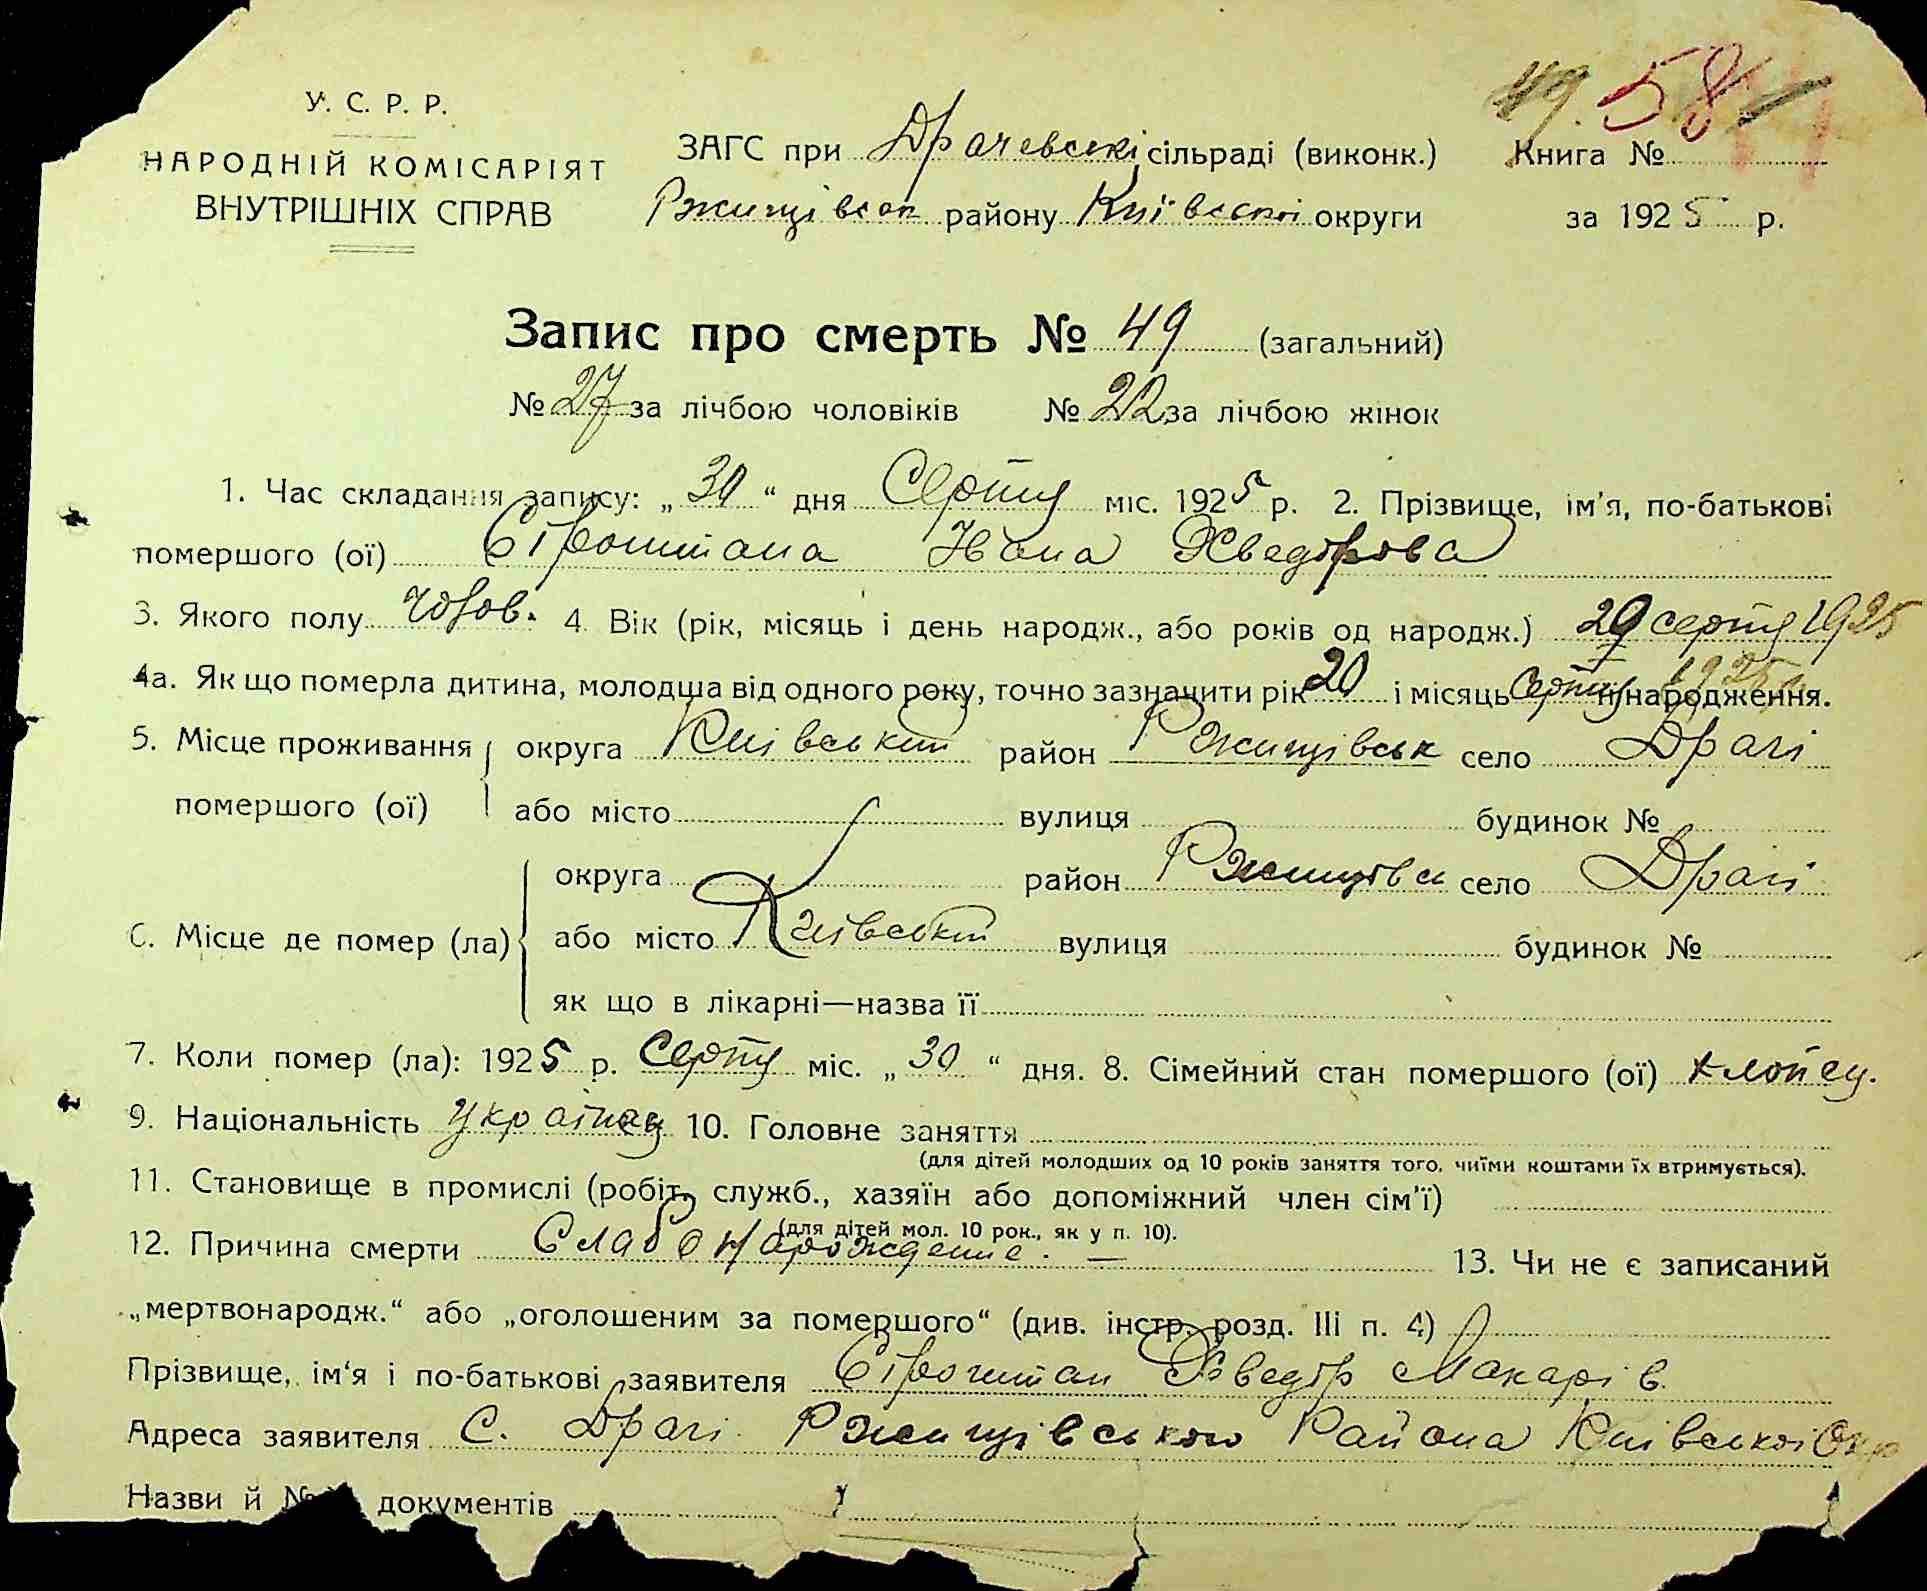 49. 58
У. С. Р. Р.
НАРОДНІЙ КОМІСАРІЯТ
ВНУТРІШНІХ СПРАВ
ЗАГС при Драчевскі сільраді (виконк.) Книга №
Ржищівськ району Київської округи за 1925 р.
Запис про смерть № 49 (загальний)
№ 27 за лічбою чоловіків № 22 за лічбою жінок
1. Час складання запису: „30“ дня Серпня міс. 1925 р. 2. Прізвище, ім'я, по-батькові
помершого (ої) Івана Хведорова
3. Якого полу чолов. 4. Вік (рік, місяць і день народж., або років од народж.) 29 серпня 1925
4а. Як що померла дитина, молодша від одного року, точно зазначити рік і місяць Серпня народження.
5. Місце проживання округа Київський район Ржищівськ село Драчі
помершого (ої) або місто вулиця будинок №
округа район Ржищівськ село Драчі
6. Місце де помер (ла) або місто Київський вулиця будинок №
як що в лікарні—назва її
7. Коли помер (ла): 1925 р. Серпня міс. „30“ дня. 8. Сімейний стан помершого (ої) хлопец.
9. Національність Українец 10. Головне заняття
(для дітей молодших од 10 років заняття того, чиїми коштами їх втримується).
11. Становище в промислі (робіт., служб., хазяїн або допоміжний член сім'ї)
(для дітей мол. 10 рок., як у п. 10).
12. Причина смерти Слабонарождение. — 13. Чи не є записаний
„мертвонародж.“ або „оголошеним за помершого“ (див. інстр. розд. III п. 4)
Прізвище, ім'я і по-батькові заявителя Хведір Макарів
Адреса заявителя С. Драчі Ржищівського Района Київської Окр
Назви й № документів